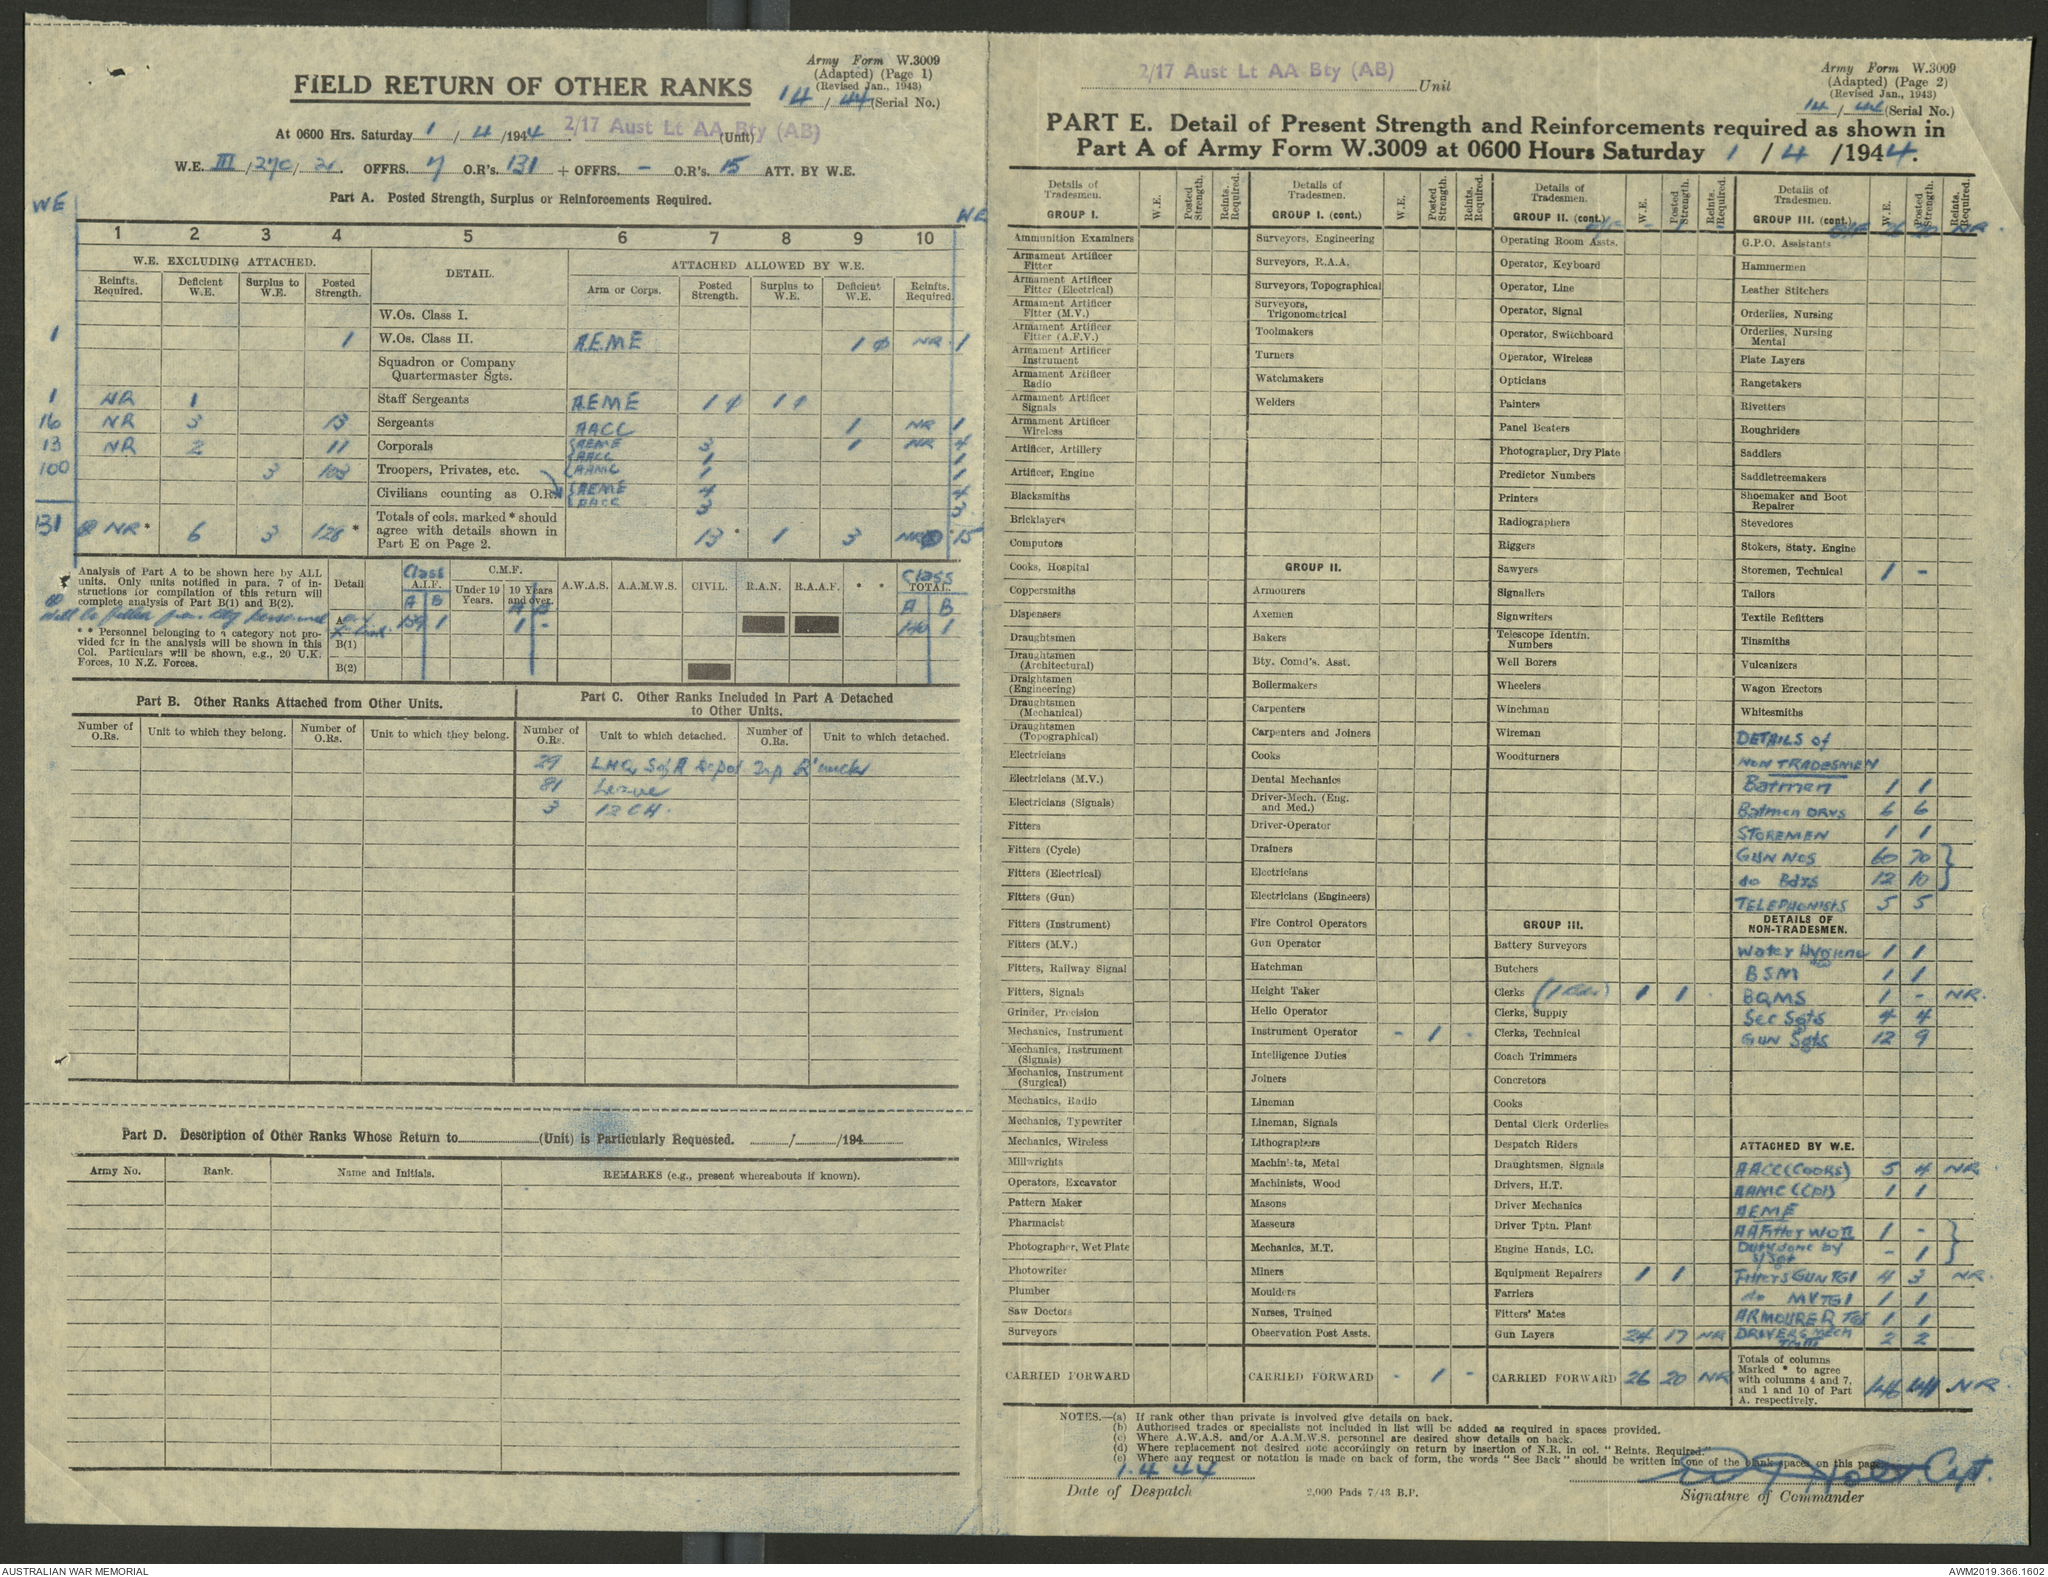 Army Form W.3009
(Adapted) (Page 1)
(Revised Jan., 1943)
14 / 44 (Serial No.)
FIELD RETURN OF OTHER RANKS
At 0600 Hrs. Saturday 1 / 4 /1944. 2/17 Aust Lt AA Bty (AB) (Unit)
W.E. III /27c/ 2. OFFRS. 7 O.R's. 131 + OFFRS. - O.R's. 15 ATT. BY W.E.
Part A. Posted Strength, Surplus or Reinforcements Required.
WE WE
1 2 3 4 5 6 7 8 9 10
W.E. EXCLUDING ATTACHED. DETAIL. ATTACHED ALLOWED BY W.E.
Reinfts. Required. Deficient W.E. Surplus to W.E. Posted Strength. Arm or Corps. Posted Strength. Surplus to W.E. Deficient W.E. Reinfts. Required.
W.Os. Class I.
1 1 W.Os. Class II. AEME 1 φ NR 1
Squadron or Company Quartermaster Sgts.
1 NR 1 Staff Sergeants AEME 1 φ 1 φ
16 NR 3 13 Sergeants AACC 1 NR 1
13 NR 2 11 Corporals AEME 3 1 NR 4
AACC 1 1
100 3 103 Troopers, Privates, etc. AAMC 1 1
Civilians counting as O.Rs. AEME 4 4
AACC 3 3
131 NR * 6 3 128 * Totals of cols. marked * should agree with details shown in Part E on Page 2. 13 * 1 3 NR * 15
Analysis of Part A to be shown here by ALL units. Only units notified in para. 7 of instructions for compilation of this return will complete analysis of Part B(1) and B(2).
* * Personnel belonging to a category not provided for in the analysis will be shown in this Col. Particulars will be shown, e.g., 20 U.K. Forces, 10 N.Z. Forces.
Detail Class A.I.F. C.M.F. Under 19 Years. 19 Years and over. A.W.A.S. A.A.M.W.S. CIVIL. R.A.N. R.A.A.F. * * Class TOTAL.
A B A B A B
A 139 1 1 - 140 1
B(1)
B(2)
Part B. Other Ranks Attached from Other Units.
Part C. Other Ranks Included in Part A Detached to Other Units.
Number of O.Rs. Unit to which they belong. Number of O.Rs. Unit to which they belong. Number of O.Rs. Unit to which detached. Number of O.Rs. Unit to which detached.
29 LHQ
81 Leave
3 12 CH.
Part D. Description of Other Ranks Whose Return to (Unit) is Particularly Requested. / /194
Army No. Rank. Name and Initials. REMARKS (e.g., present whereabouts if known).
2/17 Aust Lt AA Bty (AB) Unit
Army Form W.3009
(Adapted) (Page 2)
(Revised Jan., 1943)
14 / 44 (Serial No.)
PART E. Detail of Present Strength and Reinforcements required as shown in
Part A of Army Form W.3009 at 0600 Hours Saturday 1 / 4 /1944.
Details of Tradesmen. W.E. Posted Strength. Reints. Required.
GROUP I.
Ammunition Examiners
Armament Artificer Fitter
Armament Artificer Fitter (Electrical)
Armament Artificer Fitter (M.V.)
Armament Artificer Fitter (A.F.V.)
Armament Artificer Instrument
Armament Artificer Radio
Armament Artificer Signals
Armament Artificer Wireless
Artificer, Artillery
Artificer, Engine
Blacksmiths
Bricklayers
Computors
Cooks, Hospital
Coppersmiths
Dispensers
Draughtsmen
Draughtsmen (Architectural)
Draightsmen (Engineering)
Draughtsmen (Mechanical)
Draughtsmen (Topographical)
Electricians
Electricians (M.V.)
Electricians (Signals)
Fitters
Fitters (Cycle)
Fitters (Electrical)
Fitters (Gun)
Fitters (Instrument)
Fitters (M.V.)
Fitters, Railway Signal
Fitters, Signals
Grinder, Precision
Mechanics, Instrument
Mechanics, Instrument (Signals)
Mechanics, Instrument (Surgical)
Mechanics, Radio
Mechanics, Typewriter
Mechanics, Wireless
Millwrights
Operators, Excavator
Pattern Maker
Pharmacist
Photographer, Wet Plate
Photowriter
Plumber
Saw Doctors
Surveyors
CARRIED FORWARD
Details of Tradesmen. W.E. Posted Strength. Reints. Required.
GROUP I. (cont.)
Surveyors, Engineering
Surveyors, R.A.A.
Surveyors, Topographical
Surveyors, Trigonometrical
Toolmakers
Turners
Watchmakers
Welders
GROUP II.
Armourers
Axemen
Bakers
Bty. Comd's. Asst.
Boilermakers
Carpenters
Carpenters and Joiners
Cooks
Dental Mechanics
Driver-Mech. (Eng. and Med.)
Driver-Operator
Drainers
Electricians
Electricians (Engineers)
Fire Control Operators
Gun Operator
Hatchman
Height Taker
Helio Operator
Instrument Operator - 1 -
Intelligence Duties
Joiners
Lineman
Lineman, Signals
Lithographers
Machinists, Metal
Machinists, Wood
Masons
Masseurs
Mechanics, M.T.
Miners
Moulders
Nurses, Trained
Observation Post Assts.
CARRIED FORWARD - 1 -
Details of Tradesmen. W.E. Posted Strength. Reints. Required.
GROUP II. (cont.) B/F - 1 -
Operating Room Assts.
Operator, Keyboard
Operator, Line
Operator, Signal
Operator, Switchboard
Operator, Wireless
Opticians
Painters
Panel Beaters
Photographer, Dry Plate
Predictor Numbers
Printers
Radiographers
Riggers
Sawyers
Signallers
Signwriters
Telescope Identin. Numbers
Well Borers
Wheelers
Winchman
Wireman
Woodturners
GROUP III.
Battery Surveyors
Butchers
Clerks 1 1
Clerks, Supply
Clerks, Technical
Coach Trimmers
Concretors
Cooks
Dental Clerk Orderlies
Despatch Riders
Draughtsmen, Signals
Drivers, H.T.
Driver Mechanics
Driver Tptn. Plant
Engine Hands, I.C.
Equipment Repairers 1 1
Farriers
Fitters' Mates
Gun Layers 24 17 NR
CARRIED FORWARD 26 20 NR
Details of Tradesmen. W.E. Posted Strength. Reints. Required.
GROUP III. (cont.) B/F 26 20 NR.
G.P.O. Assistants
Hammermen
Leather Stitchers
Orderlies, Nursing
Orderlies, Nursing Mental
Plate Layers
Rangetakers
Rivetters
Roughriders
Saddlers
Saddletreemakers
Shoemaker and Boot Repairer
Stevedores
Stokers, Staty. Engine
Storemen, Technical 1 -
Tailors
Textile Refitters
Tinsmiths
Vulcanizers
Wagon Erectors
Whitesmiths
DETAILS of
NON TRADESMEN
Batmen 1 1
Batmen DRVS 6 6
STOREMEN 1 1
GUN NOS 60 70
do Bdrs 12 10
TELEPHONISTS 5 5
DETAILS OF NON-TRADESMEN.
Water Hygiene 1 1
BSM 1 1
BQMS 1 - NR.
Sec Sgts 4 4
GUN Sgts 12 9
ATTACHED BY W.E.
AACC (COOKS) 5 4 NR
AAMC (Cpl) 1 1
AEME
AAFitter WO II 1 -
Duty done by S/Sgt - 1
Fitters GUN TGI 4 3 NR.
do MV TGI 1 1
ARMOURER TGI 1 1
DRIVERS MECH TGIII 2 2
Totals of columns Marked * to agree with columns 4 and 7, and 1 and 10 of Part A. respectively. 146 141 NR
NOTES.—(a) If rank other than private is involved give details on back.
(b) Authorised trades or specialists not included in list will be added as required in spaces provided.
(c) Where A.W.A.S. and/or A.A.M.W.S. personnel are desired show details on back.
(d) Where replacement not desired note accordingly on return by insertion of N.R. in col. "Reints. Required."
(e) Where any request or notation is made on back of form, the words "See Back" should be written in one of the blank spaces on this page.
1.4.44 Capt.
Date of Despatch 2,000 Pads 7/43 B.P. Signature of Commander
AUSTRALIAN WAR MEMORIAL AWM2019.366.1602